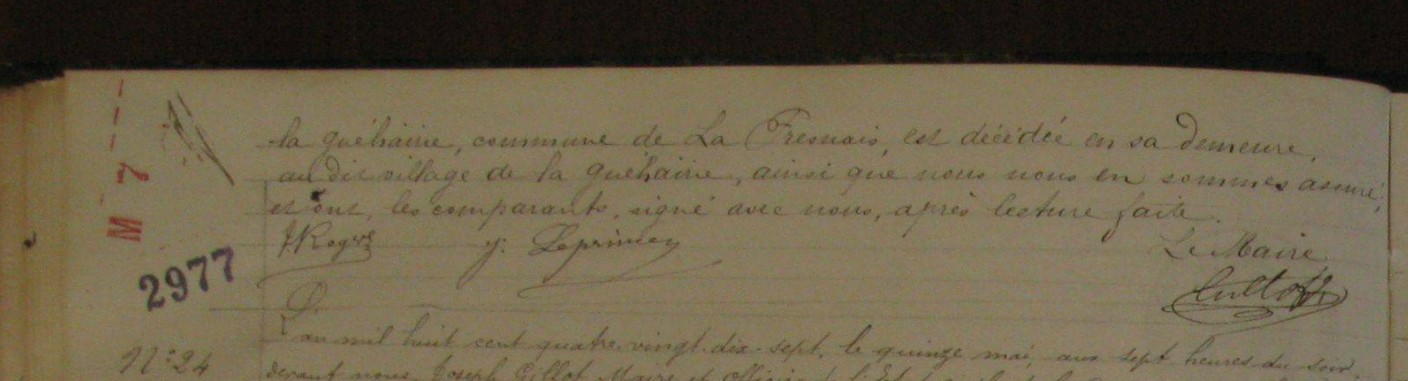 M 7
la Guéhairie, commune de La Fresnais, est décédée en sa demeure,
au dit village de la Guéhairie, ainsi que nous nous en sommes assuré;
et ont, les comparants, signé avec nous, après lecture faite.
Le Maire
2977
L'an mil huit cent quatre-vingt-dix-sept, le quinze mai, aux sept heures du soir,
N° 24
devant nous, Joseph Gillot, Maire et officier